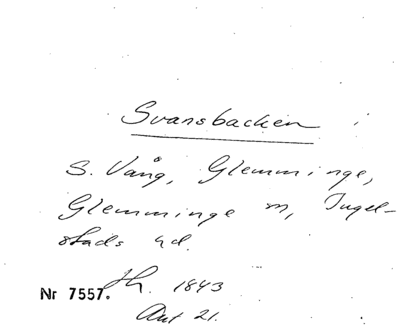 Svansbacken
S. Vång, Glemminge,
Glemminge m, Ingel-
stads hd.
Nr 7557. 1843
Ant 21.